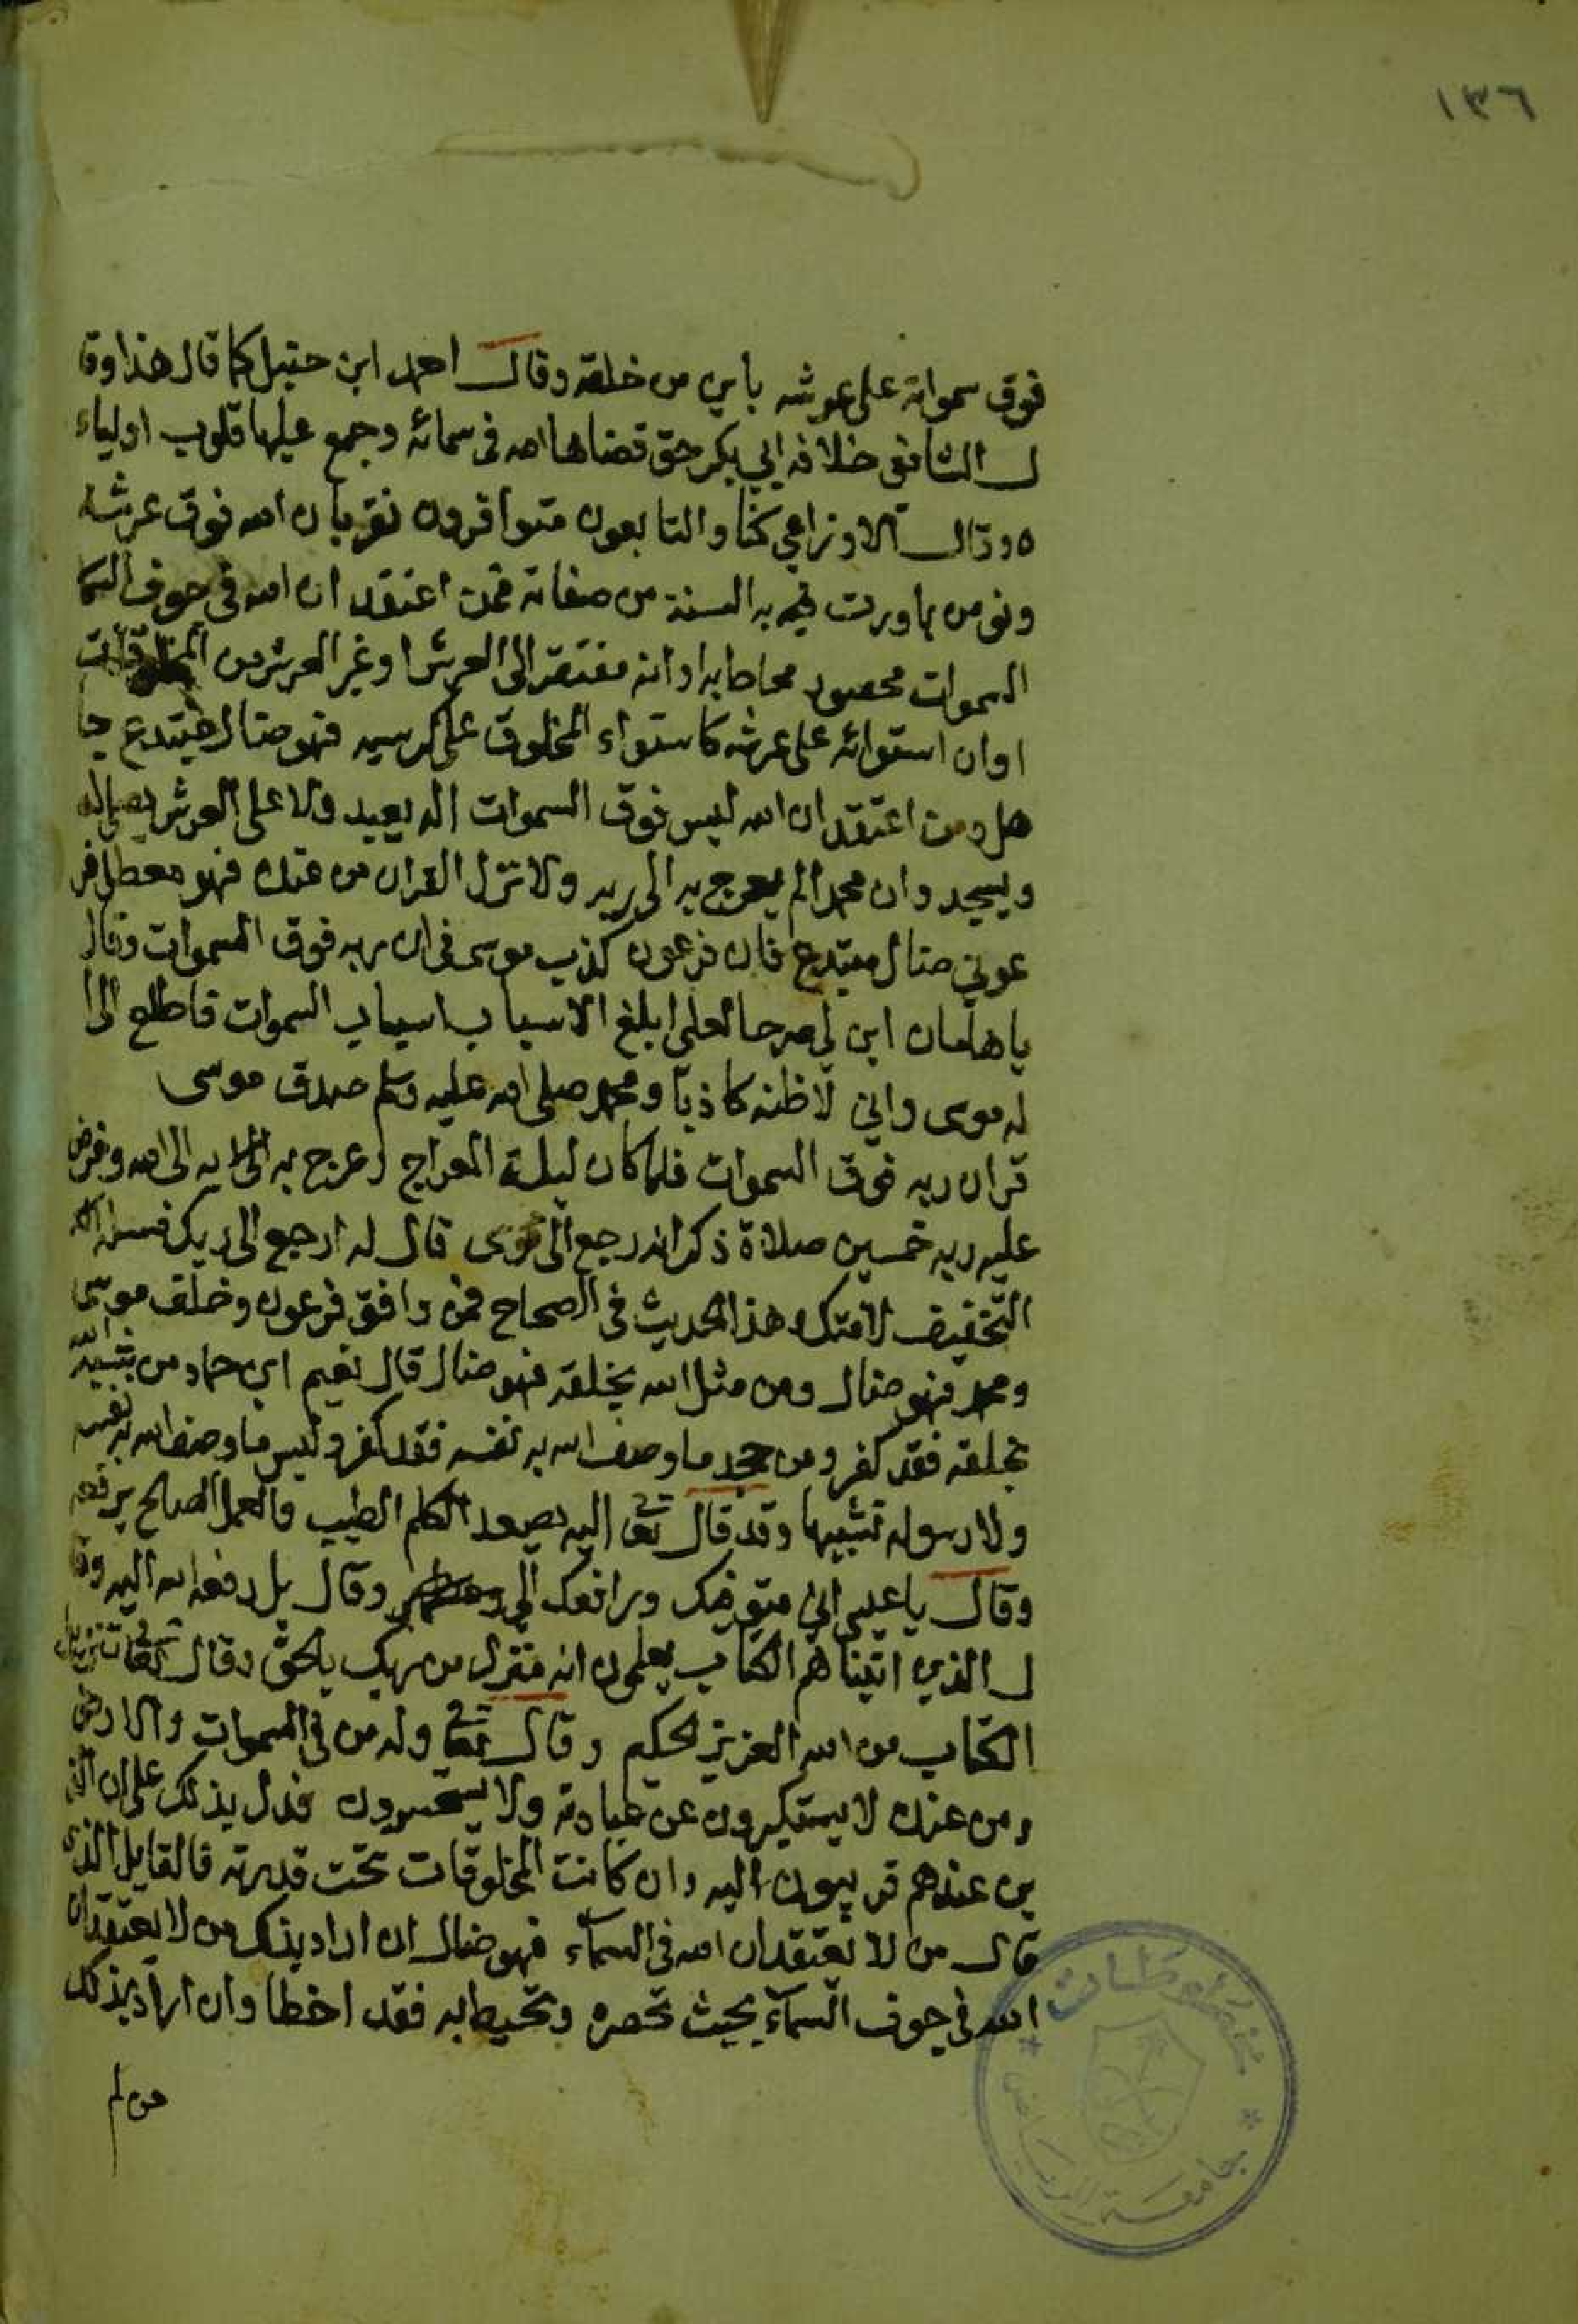 ١٣٦
فوق سمواته على عرشه باين من خلقه وقال احمد ابن حنبل كما قال هذا وقا
ل الشافعي خلافه ابي بكر حق قضاها الله في سمائه وجمع عليها قلوب اولياء
ه وقال الاوزاعي كنا والتابعون متوافرون نقر بان الله فوق عرشه
ونومن بما وردت فيه به السنة من صفاته فمن اعتقد ان الله في جوف السما
السموات محصور محاط به او انه مفتقر الى العرش او غير العرش من المخلوقات
او ان استوائه على عرشه كاستواء المخلوق على كرسيه فهو ضال مبتدع جا
هل ومن اعتقد ان الله ليس فوق السموات اله يعبد ولا على العرش يصلى له
ويسجد وان محمدا لم يعرج به الى ربه ولا نزل القران من عنده فهو معطل فر
عوني ضال مبتدع فان فرعون كذب موسى في ان ربه فوق السموات وقال
يا هامان ابن لي صرحا لعلي ابلغ الاسباب اسباب السموات فاطلع الى ا
له موسى واني لاظنه كاذبا ومحمد صلى الله عليه وسلم صدق موسى
قران ربه فوق السموات فلما كان ليلة المعراج وعرج به الى الله وفرض
عليه ربه خمسين صلاة ذكر انه رجع الى موسى قال له ارجع الى ربك فسله
التخفيف لامتك وهذا الحديث في الصحاح فمن وافق فرعون وخلف موسى
ومحمد فهو ضال ومن مثل الله بخلقه فهو ضال قال نعيم ابن حماد من شبه الله
بخلقه فقد كفر ومن جحد ما وصف الله به نفسه فقد كفر وليس ما وصف الله به نفسه
ولا رسوله تشبيها وقد قال تعا اليه يصعد الكلم الطيب والعمل الصالح يرفعه
وقال يا عيسى اني متوفيك ورافعك الي وقال بل رفعه الله اليه وقا
ل الذين اتيناهم الكتاب يعلمون انه منزل من ربك بالحق وقال تعا تنزيل
الكتاب من الله العزيز الحكيم وقال تعا وله من في السموات والارض
ومن عنده لا يستكبرون عن عبادته ولا يستحسرون فدل بذلك على ان الذ
ين عندهم قريبون اليه وان كانت المخلوقات تحت قدرته فالقايل الذي
قال من لا يعتقد ان الله في السماء فهو ضال ان اراد بذلك من لا يعتقد ان
الله في جوف السماء بحيث تحصره وتحيط به فقد اخطا وان اراد بذلك
من لم
مخطوطات
جامعة الرياض